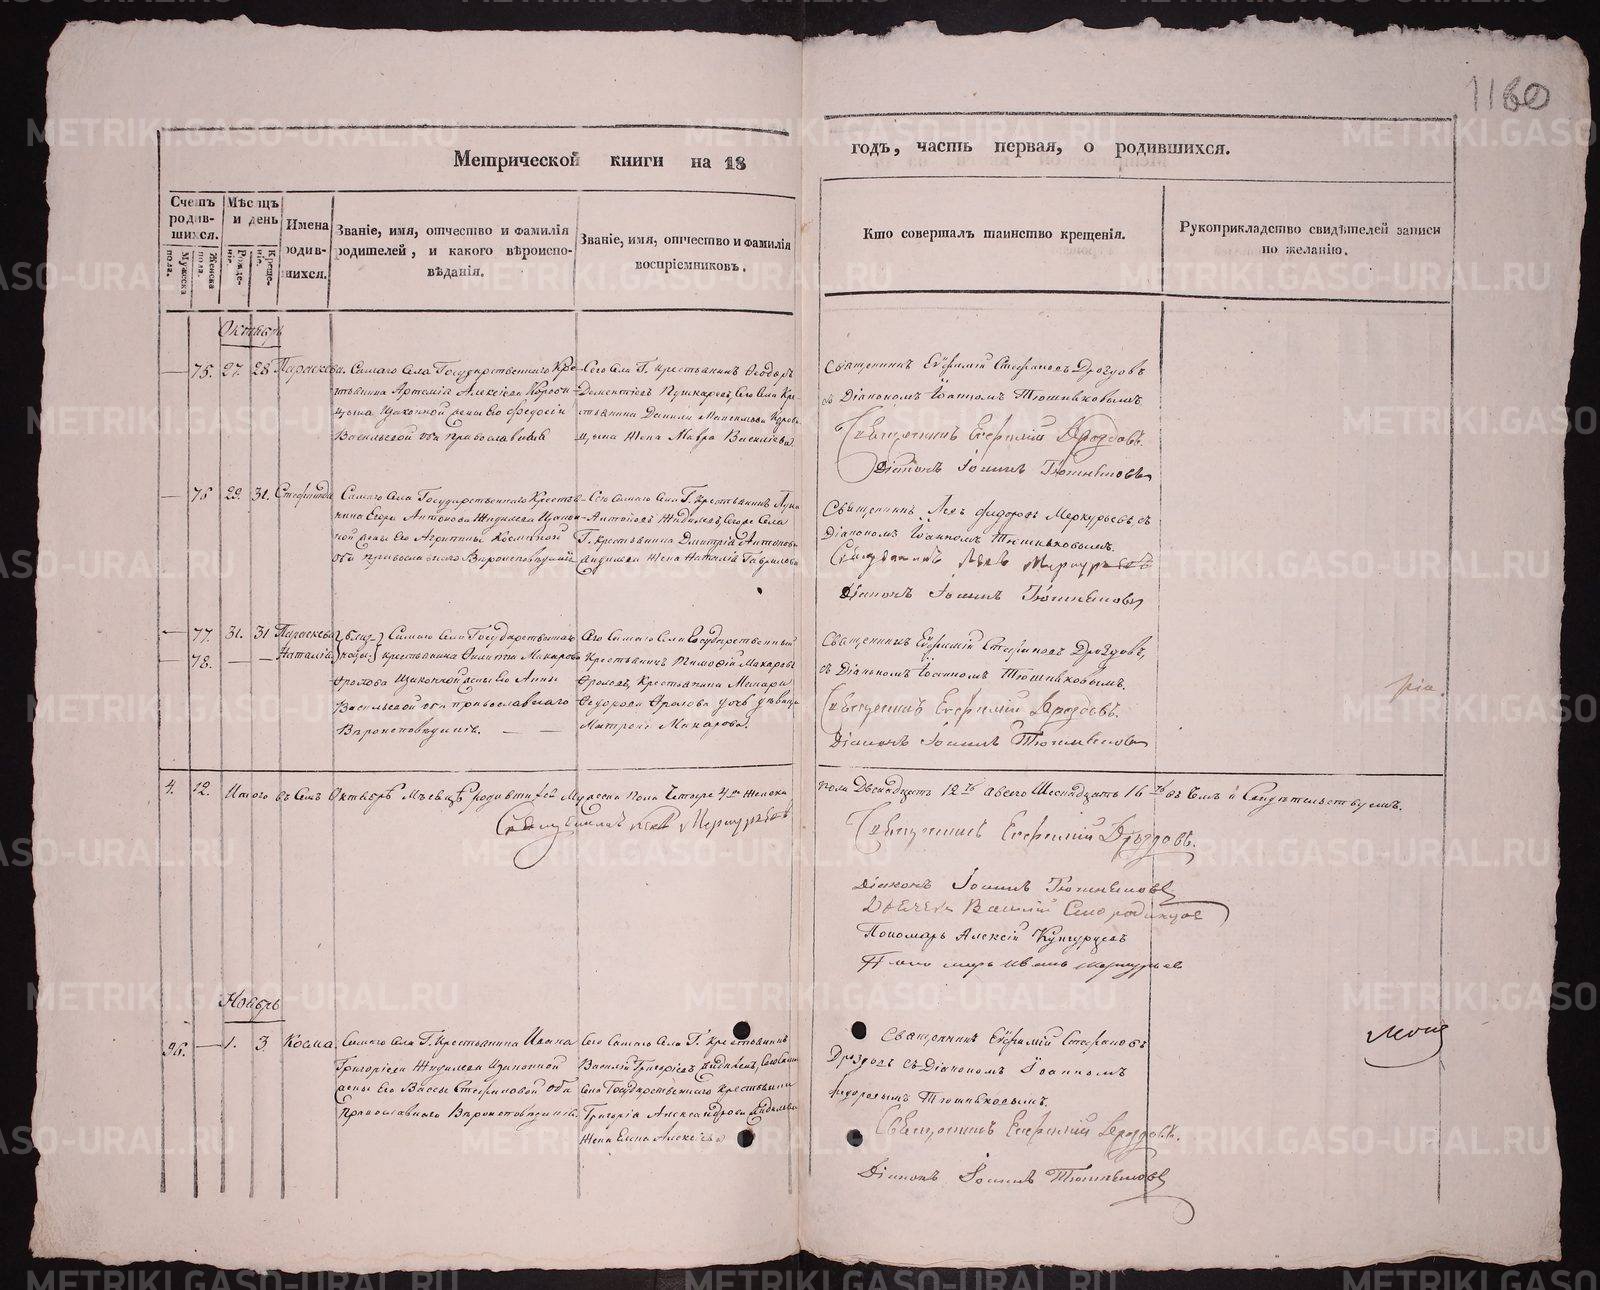 1160
Метрической книги на 18
годъ, часть первая, о родившихся.
Счетъ родившихся.
Мужеска пола.
Женска пола.
Мѣсяцъ и день
Рожденіе.
Крещеніе.
Имена родившихся.
Званіе, имя, отчество и фамилія
родителей, и какого вѣроиспо-
вѣданія.
Званіе, имя, отчество и фамилія
воспріемниковъ.
Кто совершалъ таинство крещенія.
Рукоприкладство свидѣтелей записи
по желанію.
Октябрь
75. 27. 28 Параскева.
Самаго Села Государственнаго Кре-
стьянина Артемія Алексіева
законной жены его Феодосіи
Васильевой оба православныя
Сего Села Г. Крестьянинъ Феодоръ
Пушкаревъ, Сего Села Кре-
стьянина Данила
жена Мавра Василіева
Священникъ Евфимій Стефановъ Дроздовъ
съ Діакономъ Іоанномъ Тюшняковымъ.
Священникъ Евфимій Дроздовъ.
Діаконъ Іоаннъ Тюшняковъ
76 29. 31. Стефанида
Самаго Села Государственнаго Крестья-
нина Егора Антонова Жидилева Закон-
ной жены его Агрипины Космины
оба православнаго Вѣроисповеданія
Сего самаго Села Г. Крестьянинъ
Антоновъ Жидилевъ, Сего Села
Г. Крестьянина Дмитрія Антонова
Жидилева жена Наталія Гаврилова
Священникъ Левъ Федоровъ Меркурьевъ съ
Діакономъ Іоанномъ Тюшняковымъ.
Священникъ Левъ Меркурьевъ
Діаконъ Іоаннъ Тюшняковъ
77. 31. 31 Параскева
78. — — Наталія
близ-
нецы.
Самаго Села Государственнаго
крестьянина Филиппа Макарова
Фролова Законной жены его Анны
Васильевой оба православнаго
Вѣроисповеданія.
Сего Самаго Села Государственный
Крестьянинъ Тимофей Макаровъ
Фроловъ, Крестьянина Макара
Федорова Фролова дочь дѣвица
Матрона Макарова.
Священникъ Евфимій Стефановъ Дроздовъ,
съ Діакономъ Іоанномъ Тюшняковымъ.
Священникъ Евфимій Дроздовъ.
Діаконъ Іоаннъ Тюшняковъ
4. 12. Итого въ Семъ Октябрѣ Мѣсяцѣ родившихся Мужеска пола Четыре 4ре Женска
пола Двенадцать 12ть а всего Шеснадцать 16ть въ чемъ и Свидѣтельствуемъ.
Священникъ Левъ Меркурьевъ
Священникъ Евфимій Дроздовъ.
Діаконъ Іоаннъ Тюшняковъ
Дьячекъ Василій Смородинцовъ
Пономарь Алексій Кунгурцевъ
Пономарь Иванъ Меркурьевъ
Ноябрь
96. — 1. 3 Косма.
Самаго Села Г. Крестьянина Ивана
Григоріева Жидилева Законной
жены Его Вассы Стефановой оба
Православнаго Вѣроисповеданія.
Сего Самаго Села Г. Крестьянинъ
Василій Григоріевъ Жидилевъ,
Села Государственнаго крестьянина
Григорія Александрова Жидилева
Жена Елена Алексіева
Священникъ Евфимій Стефановъ
Дроздовъ съ Діакономъ Іоанномъ
Федоровымъ Тюшняковымъ.
Священникъ Евфимій Дроздовъ.
Діаконъ Іоаннъ Тюшняковъ
METRIKI.GASO-URAL.RU